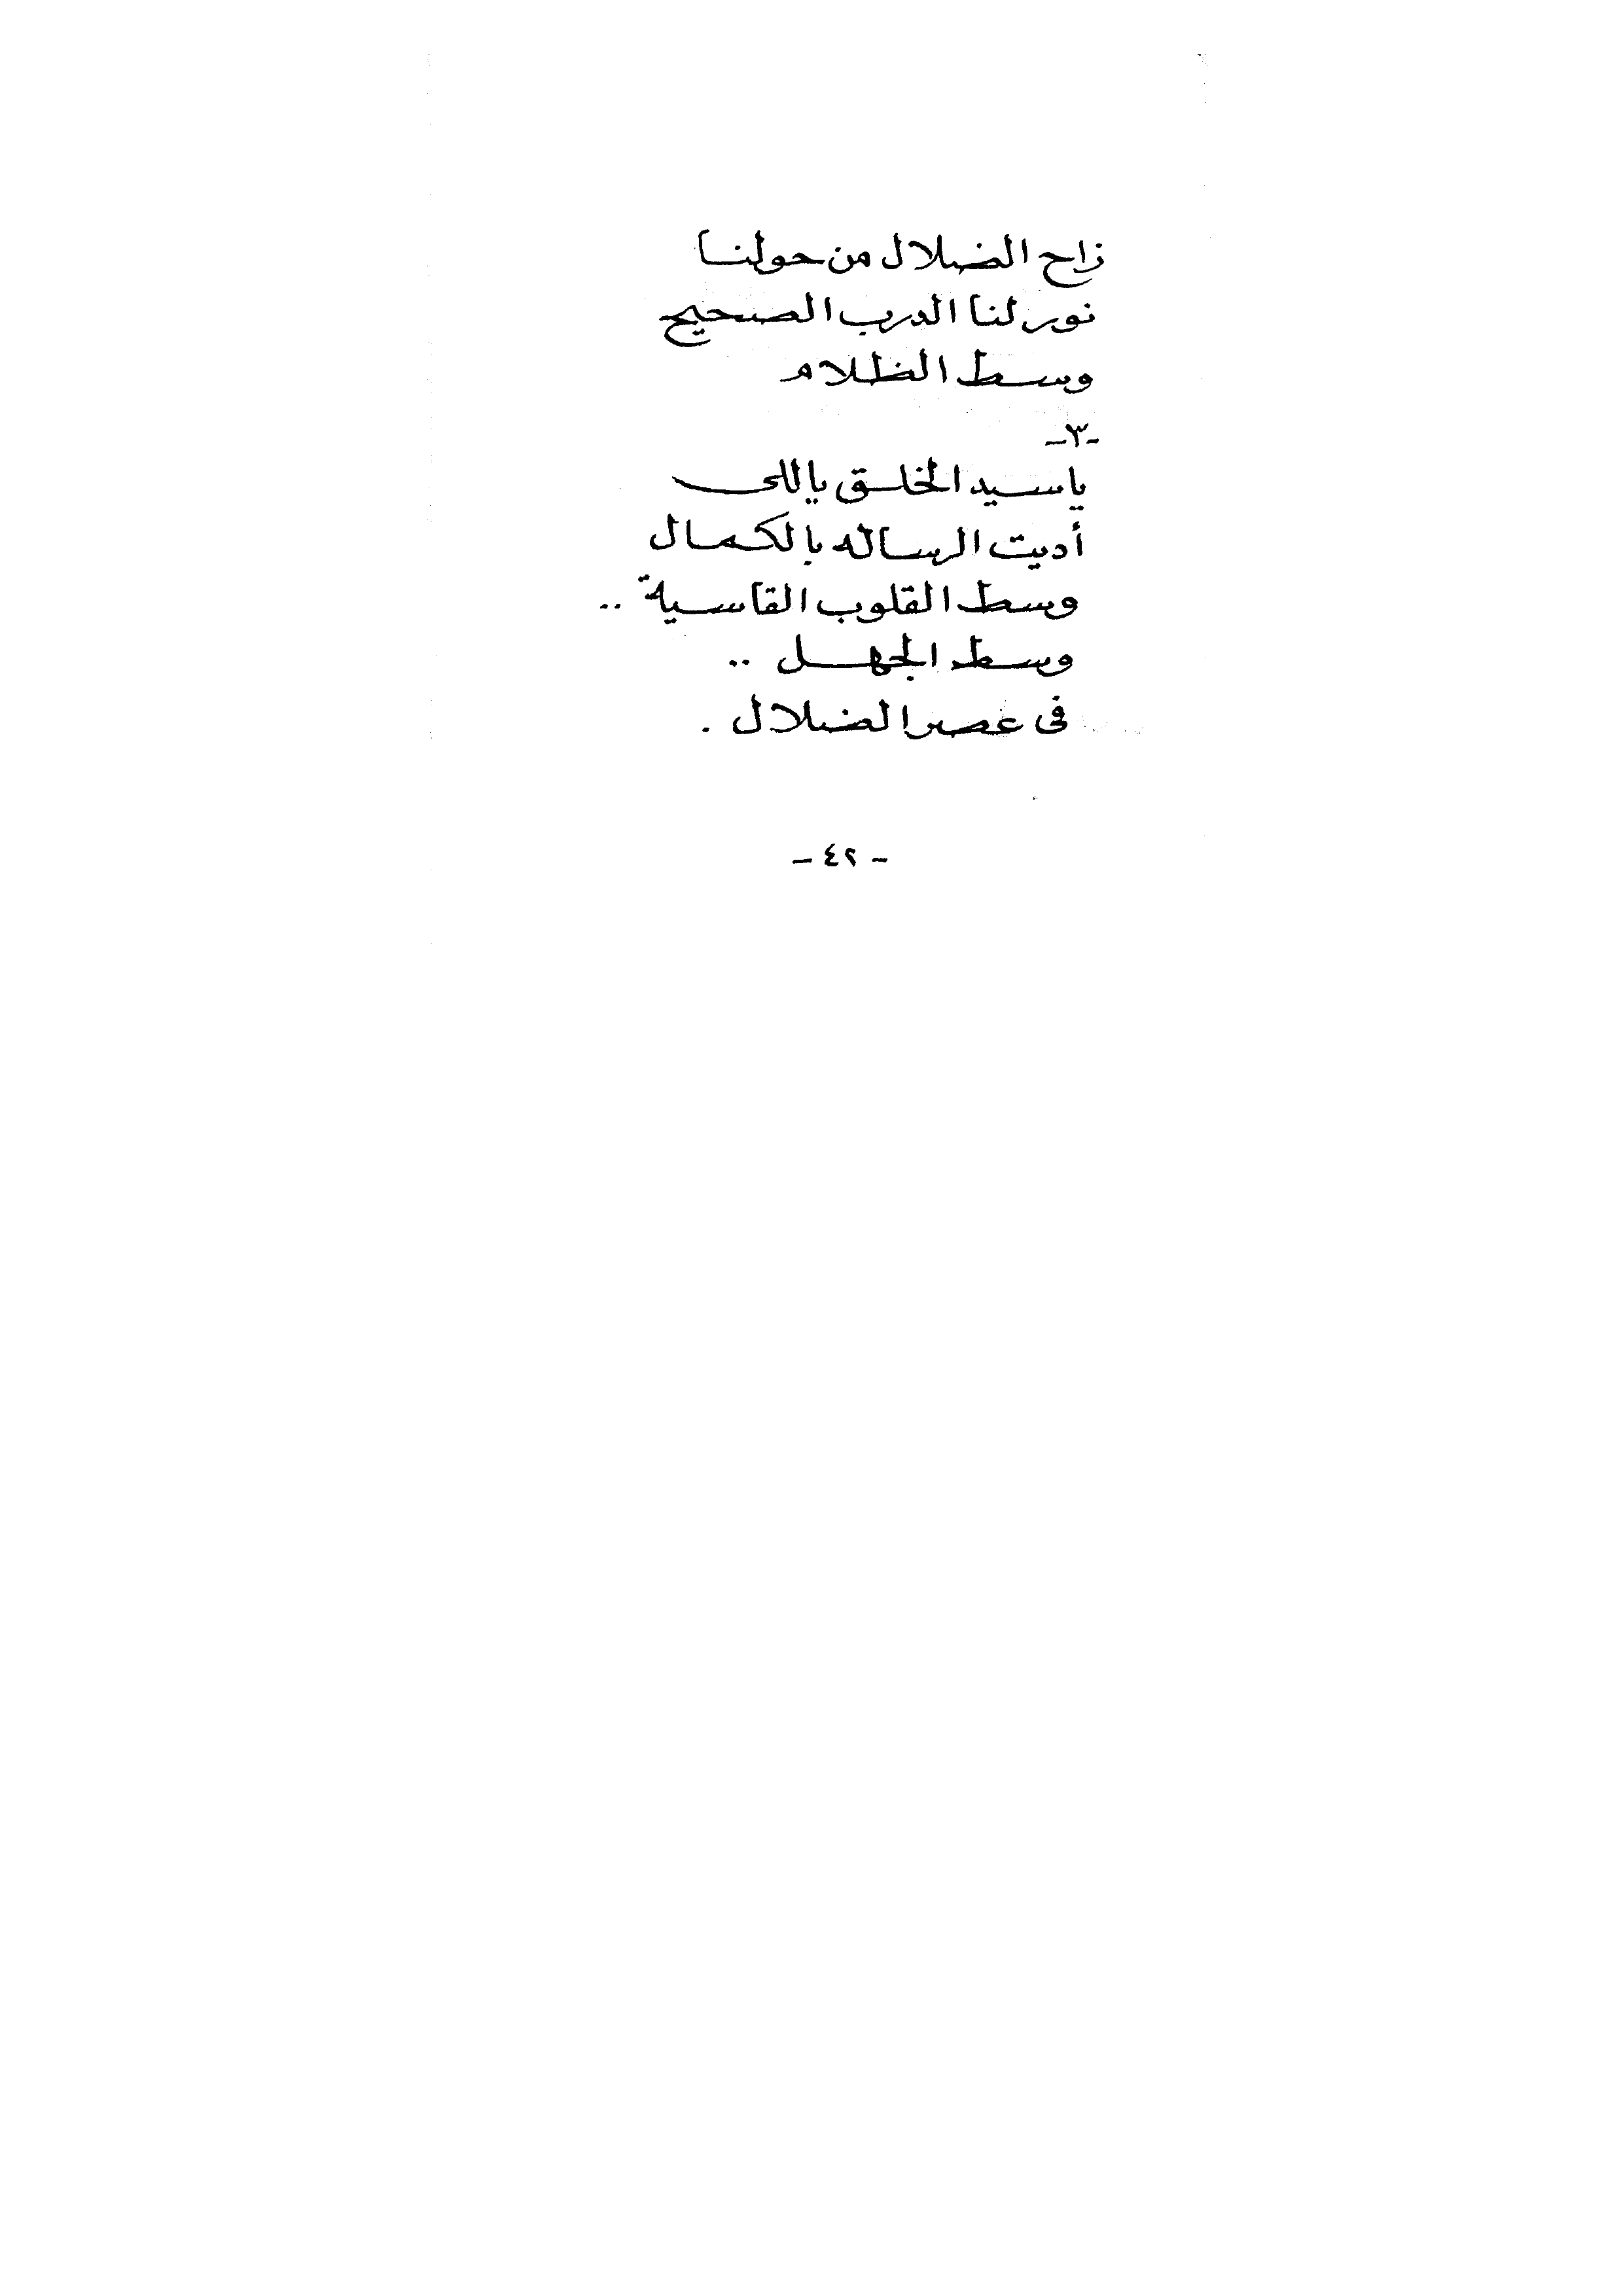 زاح الضلال من حولنا
نور لنا الدرب الصحيح
وسط الظلام
-٣-
ياسيد الخلق ياللى
أديت الرساله بالكمال
وسط القلوب القاسية ..
وسط الجهل ..
فى عصر الضلال .
- ٤٢ -